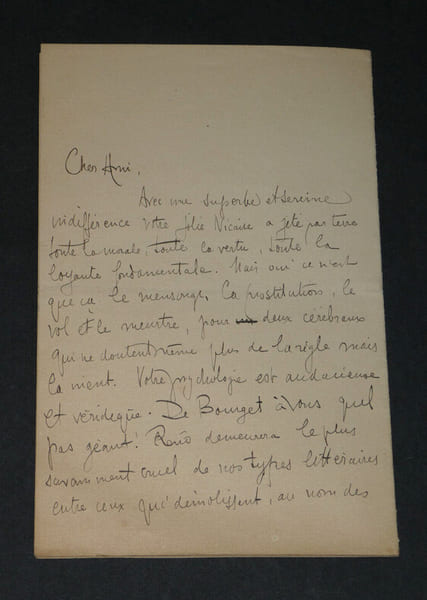 Cher Ami,
Avec une superbe et sereine
indifférence votre jolie Niçoise a jeté par terre
toute la morale, toute la vertu, toute la
loyauté fondamentale. Mais oui ce n'est
que ça le mensonge, la prostitution, le
vol et le meurtre, pour deux cérébraux
qui ne doutent même plus de la règle mais
la nient. Votre psychologie est audacieuse
et véridique. De Bourget à vous quel
pas géant! Renó demeurera le plus
savamment cruel de nos types littéraires
entre ceux qui démolissent, au nom des